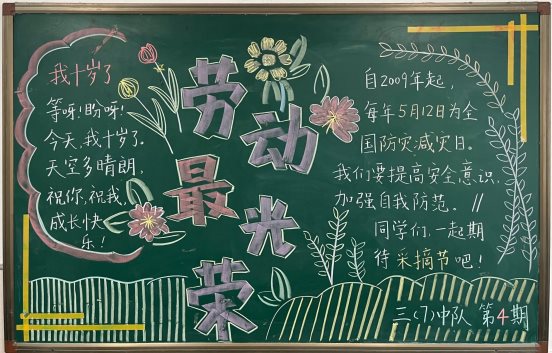 我十岁了
等呀!盼呀!
今天,我十岁了.
天空多晴朗,
祝你,祝我,
成长快
乐!
劳动
最光荣
自2009年起,
每年5月12日为全
国防灾减灾日。
我们要提高安全意识,
加强自我防范。
同学们,一起期
待采摘节吧!
三(7)中队 第4期